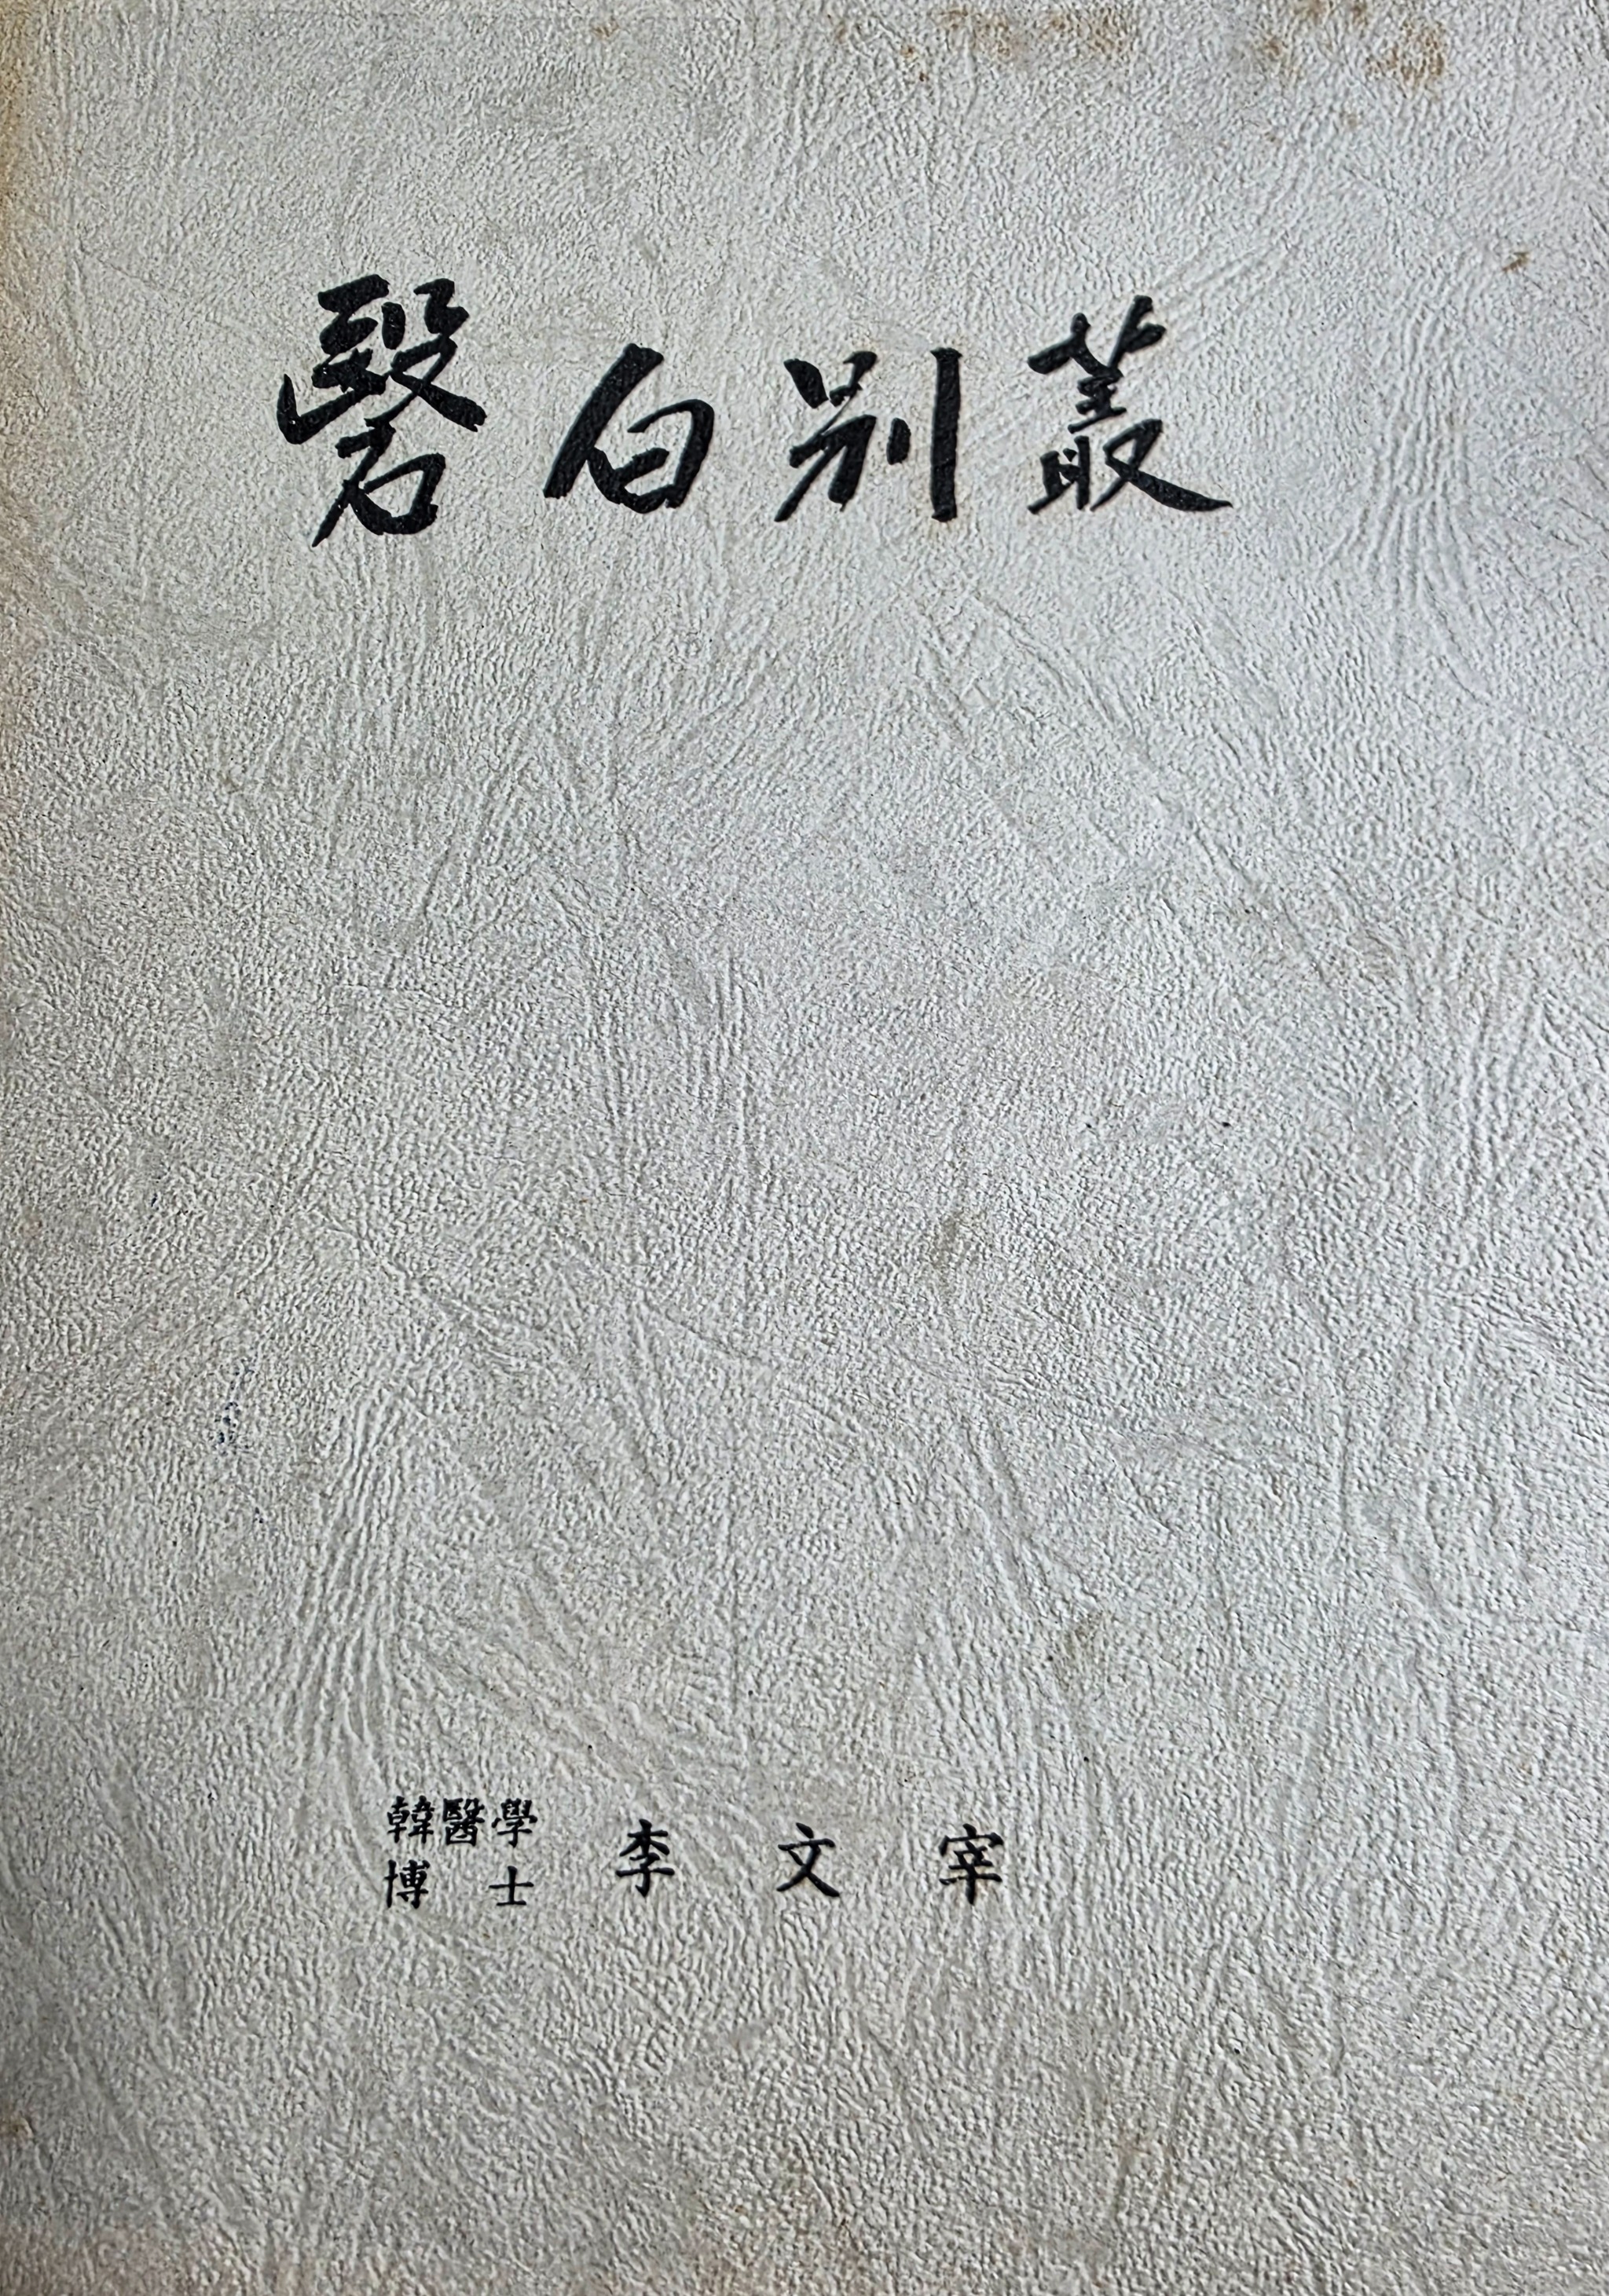 醫白別叢
韓醫學博士 李文宰